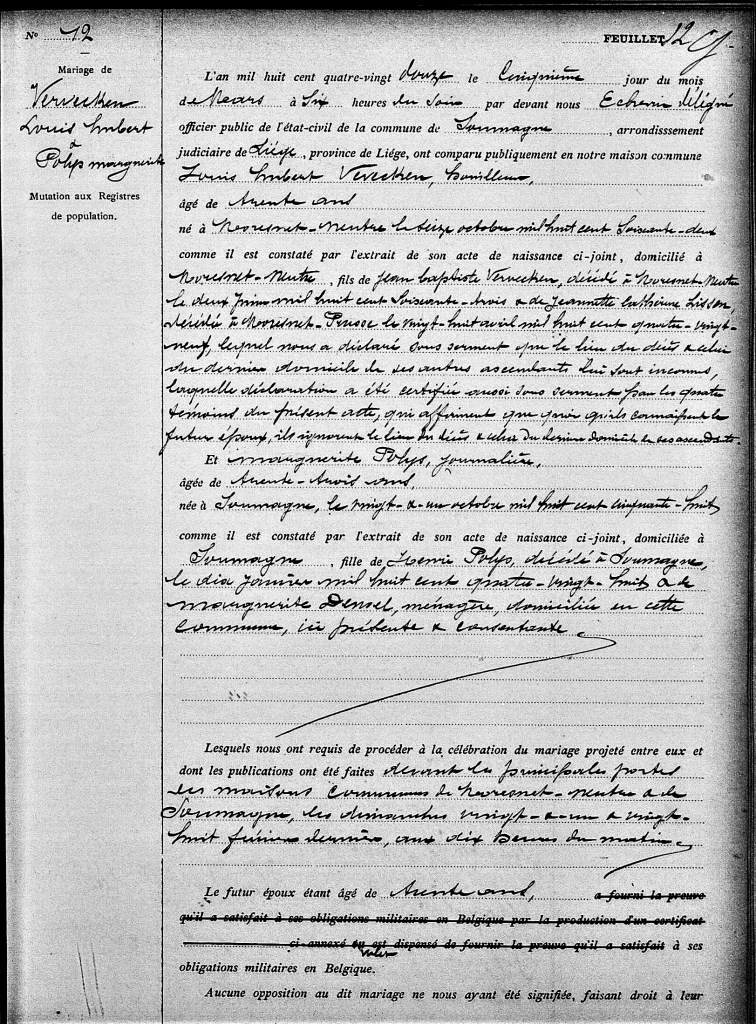 N° 12
FEUILLET 12
Mariage de
Vervecken
Louis hubert
à
Polys marguerite
Mutation aux Registres
de population.
L'an mil huit cent quatre-vingt douze le Cinquième jour du mois
de Mars à Six heures du Soir par devant nous Echevin délégué
officier public de l'état-civil de la commune de Soumagne, arrondissement
judiciaire de Liége, province de Liége, ont comparu publiquement en notre maison commune
Louis hubert Vervecken, houilleur,
âgé de trente ans
né à Moresnet-neutre le seize octobre mil huit cent Soixante-deux
comme il est constaté par l'extrait de son acte de naissance ci-joint, domicilié à
Moresnet-Neutre, fils de Jean baptiste Vervecken, décédé à Moresnet-Neutre
le deux juin mil huit cent Soixante-trois & de Jeannette Catherine Lisson,
décédée à Moresnet-Prusse le vingt-huit avril mil huit cent quatre-vingt-
neuf, lequel nous a déclaré sous serment que le lieu du décès & celui
du dernier domicile de ses autres ascendants lui sont inconnus,
laquelle déclaration a été certifiée aussi sous serment par les quatre
témoins du présent acte, qui affirment que quoiqu'ils connaissent le
futur époux, ils ignorent le lieu du décès & celui du dernier domicile de ses ascendants.
Et marguerite Polys, journalière,
âgée de trente-trois ans,
née à Soumagne, le vingt-&-un octobre mil huit cent cinquante-huit
comme il est constaté par l'extrait de son acte de naissance ci-joint, domiciliée à
Soumagne, fille de Henri Polys, décédé à Soumagne,
le dix janvier mil huit cent quatre-vingt-huit & de
marguerite Densel, ménagère, domiciliée en cette
commune, ici présente & consentante.
Lesquels nous ont requis de procéder à la célébration du mariage projeté entre eux et
dont les publications ont été faites devant les principales portes
des maisons communes de Moresnet-neutre & de
Soumagne, les dimanches vingt-&-un & vingt-
huit février dernier, aux dix heures du matin.
Le futur époux étant âgé de trente ans, a fourni la preuve
qu'il a satisfait à ses obligations militaires en Belgique par la production d'un certificat
ci-annexé ou est dispensé de fournir la preuve qu'il a satisfait à ses
obligations militaires en Belgique.
Aucune opposition au dit mariage ne nous ayant été signifiée, faisant droit à leur